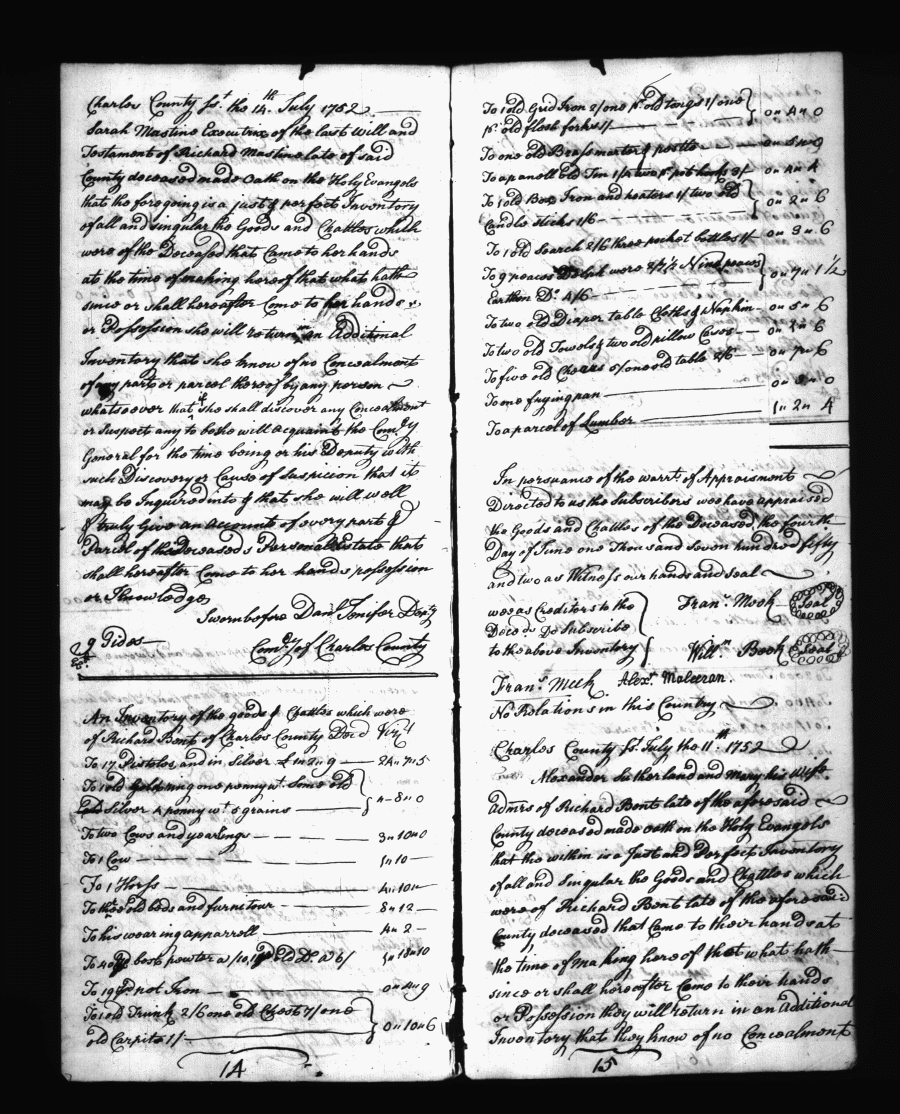 Charles County ss.t the 14.th July 1752
Sarah Mastine Executrix of the last will and
Testament of Richard Mastine late of said
County deceased made Oath on the Holy Evangels
that the foregoing is a just & perfect Inventory
of all and singular the Goods and Chattles which
were of the Deceased that Came to her hands
at the time of making hereof that what hath
since or shall hereafter Come to her hands
or Possession she will return in an Additional
Inventory that she know of no Concealment
of any part or parcel thereof by any person
whatsoever that if she shall discover any Concealment
or suspect any to be she will acquaint the Com.ry
General for the time being or his Deputy with
such Discovery or Cause of Suspicion that it
may be Inquired into & that she will well
& truly Give an account of every part &
Parcel of the Deceaseds Personal Estate that
shall hereafter Come to her hands possession
or Knowledge
Sworn before Danl Jenifer Depty
Com.ry of Charles County
9 Sides
An Inventory of the goods & Chattles which were
of Richard Bent of Charles County Decd
To 17 Pistoles and in Silver 24 " 7 " 5
To 1 old Gold ring one penny wt. Some old
Silver 4 penny wt 6 grains 4 - 8 " 0
To two Cows and yearlings 3 " 10 " 0
To 1 Cow 1 " 10
To 1 Horse 4 " 10 "
To three old beds and furnetour 8 " 12
To his wearing apparrell 4 " 2
best pewter a /10, Old Do. a 6/
pot Iron
To 1 old Trunk 2/6 one old Chest 7/ one
old Carpite 1/ 0 " 10 " 6
14
To 1 old Grid Iron 2/ one pr old tongs 1/ one
pr old flesh forks 1/ 0 " 4 " 0
To one old Brass morter & pestle
To a panell old Tinn 1/4 two pr pot hooks 3/ 0 " 4 " 4
To 1 old Box Iron and heaters 1/ two old
Candle sticks 1/6 0 " 2 " 6
To 1 old Search 2/6 three pocket bottles 1/ 0 " 3 " 6
To 9 peaces Delph were 2/7½ Nine peaces
Earthen Do. 4/6 0 " 7 " 1½
To two old Diaper table Cloths & Napkin 0 " 5 " 6
To two old Towels & two old pillow Cases 0 " 2 " 6
To five old Chears 5/ one old table 2/6 0 " 7 " 6
To one frying pan 0 " 3 " 0
To a parcel of Lumber 1 " 2 " 4
In persuance of the warrt. of Appraisment
Directed to us the Subscribers wee have appraised
the Goods and Chattles of the Deceased, the fourth
Day of June one Thousand seven hundred fifty
and two as Witness our hands and seal
wee as Creditors to the Fran.s Meek Seal
Deced. Do Subscribe
to the above Inventory Will.m Book Seal
Fran.s Meek Alex.r Maleeran.
No Relations in this Country
Charles County ss.t July the 11.th 1752
Alexander Sutherland and Mary his Wife
admrs of Richard Bent late of the aforesaid
County deceased made oath on the Holy Evangels
that the within is a Just and Perfect Inventory
of all and Singular the Goods and Chattles which
were of Richard Bent late of the aforesaid
County deceased that Came to their hands at
the time of making hereof that what hath
since or shall hereafter Come to their hands
or Possession they will return in an Additional
Inventory that they know of no Concealment
15